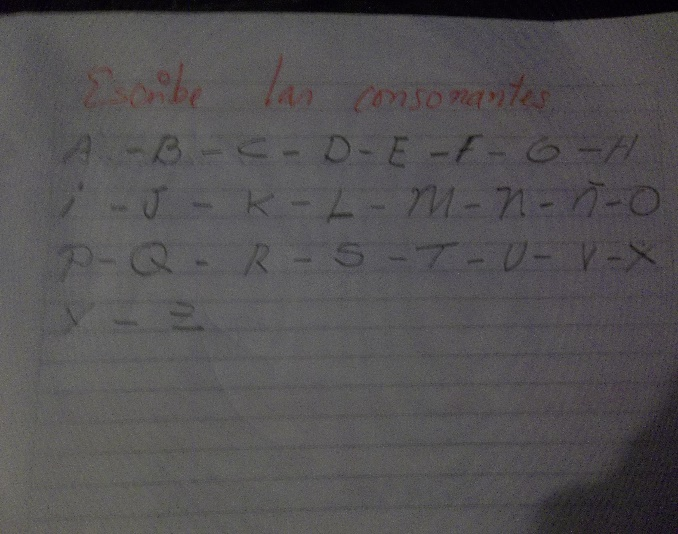 Escribe las consonantes
A - B - C - D - E - F - G - H
i - J - K - L - M - N - Ñ - O
P - Q - R - S - T - U - V - X
Y - Z